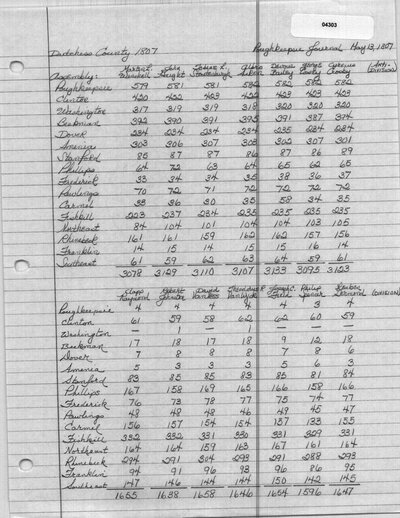 04303
Dutchess County 1807. Poughkeepsie Journal May 13, 1807
Martin E. John Tobias L. Albro Derrick George Cyrenius (Anti-
Assembly: Winchell Haight Stoutenburgh Akin Crosby Division)
Poughkeepsie 579 581 581 582 582 582 582
Clinton 420 422 423 422 423 423 423
Washington 317 319 319 318 320 320 320
Beekman 392 390 391 395 391 387 394
Dover 234 234 234 234 235 234 234
Amenia 303 306 307 303 302 307 301
Stanford 85 87 87 86 87 86 89
Phillips 64 72 63 64 65 62 65
Frederick 33 34 34 35 38 36 37
Pawlings 70 72 71 72 72 72 72
Carmel 33 36 30 35 58 34 35
Fishkill 223 237 234 235 235 235 235
Northeast 84 104 101 104 104 103 105
Rhinebeck 161 161 159 162 162 157 156
Franklin 14 15 14 15 15 16 14
Southeast 61 59 62 63 64 59 61
3078 3129 3110 3107 3133 3095 3123
Clapp Robert David Theodorus R. Joseph C. Philip
Raymond Johnston Van Ness Van Wyck Field Spencer (DIVISION)
Poughkeepsie 4 4 4 4 4 3 4
Clinton 61 59 58 62 62 60 59
Washington — 1 — — — — —
Beekman 17 18 17 18 9 12 18
Dover 7 8 8 8 7 8 6
Amenia 5 3 3 3 5 6 3
Stanford 83 85 85 83 85 81 84
Phillips 167 158 169 165 166 158 166
Frederick 76 73 78 77 75 74 77
Pawlings 48 48 48 46 49 45 47
Carmel 156 157 154 154 137 153 155
Fishkill 332 332 331 330 331 329 331
Northeast 164 164 159 163 167 161 164
Rhinebeck 294 291 304 293 291 288 293
Franklin 94 91 96 93 96 86 95
Southeast 147 146 144 144 150 142 145
1655 1638 1658 1646 1654 1596 1647